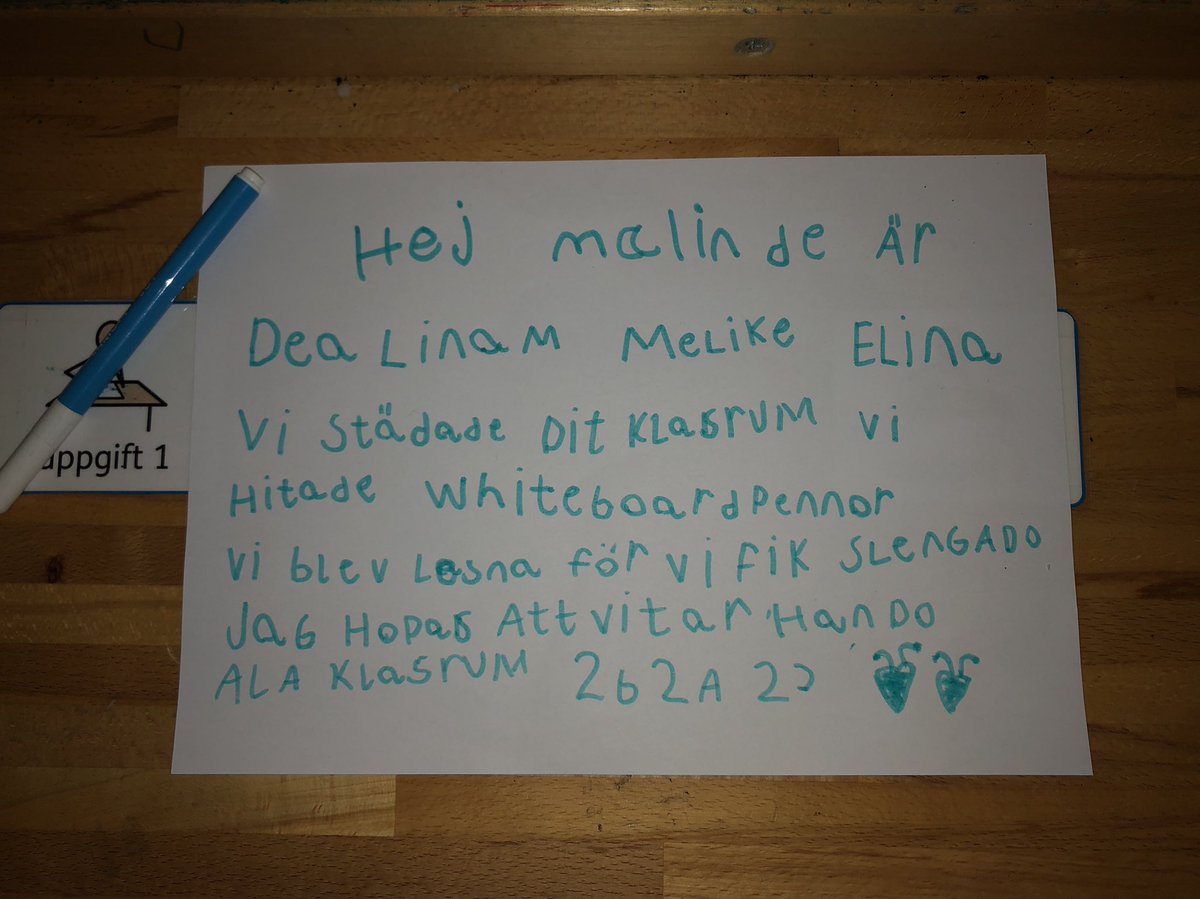 Hej malin de Är
Dea Linam Melike Elina
Vi städade Dit klasrum vi
Hitade whiteboardpennor
vi blev lesna för vi fik SLENGADO
JAG HOPAS Att vi tar HanDO
ALA klasrum 2b 2A 2c
uppgift 1